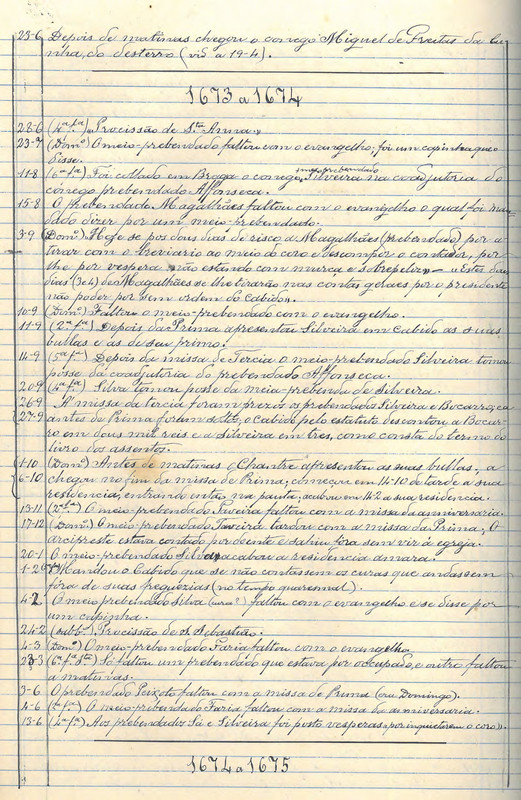 23-6 Depois de matinas chegou o conego Miguel de Freitas da Cu-
nha, do desterro (vid. a 19-4).
1673 a 1674
28-6 (4ª fª) «Procissão de Stª Anna».
23-7 (Domº) O meio-prebendado faltou com o evangelho; foi um capinha que o
disse.
11-8 (6ª fª) Foi collado em Braga o conego meio prebendado Silveira na coadjutoria do
conego prebendado Affonseca.
15-8 O prebendado Magalhães faltou com o evangelho o qual foi man-
dado dizer por um meio-prebendado.
3-9 (Domº) «Hoje se pos dous dias de risco a Magalhães (prebendado) por a-
tirar com o breviario ao meio do coro e descompor o contador, por
lhe por vespera não estando com murca e sobrepeliz» — «Estes dous
dias (3 e 4) de Magalhães se lhe tirarão nas contas geraes por o presidente
não poder por sem ordem do Cabido».
10-9 (Domº) Faltou o meio-prebendado com o evangelho.
11-9 (2ª fª) Depois da Prima apresentou Silveira em Cabido as suas
bullas e as de seu primo.
14-9 (5ª fª) Depois da missa de Tercia o meio-prebendado Silveira tomou
posse da coadjutoria do prebendado Affonseca.
20-9 (4ª fª) Silva tomou posse da meia-prebenda de Silveira.
26-9 A' missa da tercia foram prezos os prebendados Silveira e Bocarro, e a
27-9 antes de Prima foram soltos; o Cabido pelo estatuto descontou a Bocar-
ro em dous mil reis e a Silveira em tres, como consta do termo do
livro dos assentos.
1-10 (Domº) Antes de matinas o Chantre apresentou as suas bullas, a
6-10 chegou no fim da missa de Prima; começou em 14-10 de tarde a sua
residencia, entrando então na pauta, acabou em 14-2 a sua residencia.
13-11 (2ª fª) O meio-prebendado Taveira faltou com a missa da anniversaria.
17-12 (Domº) O meio-prebendado Taveira tardou com a missa da Prima; O
arcipreste estava contado por doente e sahiu fora sem vir á egreja.
20-1 O meio-prebendado Silva acabou a residencia amara.
1-2 Mandou o Cabido que se não contassem os curas que andassem
fóra de suas freguezias (no tempo quaresmal).
4-2 O meio prebendado Silva faltou com o evangelho e se disse por
um capinha.
24-2 (sabbº) Procissão de S. Sebastião.
4-3 (Domº) O meio-prebendado Faria faltou com o evangelho.
23-3 (6ª fª Stª) Só faltou um prebendado que estava por occupado, e outro faltou
a matinas.
3-6 O prebendado Peixoto faltou com a missa de Prima (era Domingo).
4-6 (2ª fª) O meio-prebendado Faria faltou com a missa da anniversaria.
13-6 (4ª fª) Aos prebendados Sá e Silveira foi posto vesperas «por inquietarem o coro».
1674 a 1675